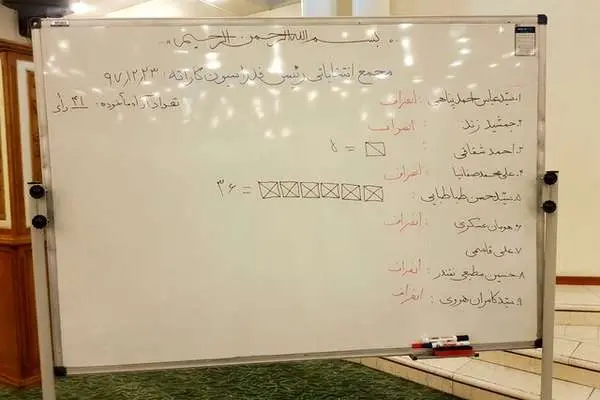 بسم الله الرحمن الرحیم
مجمع انتخاباتی رئیس فدراسیون کاراته: ۹۷/۱۲/۲۳
تعداد آراء ماخوذه: ۴۱ رأی
۱. سید عباس احمد پناهی: انصراف
۲. جمشید زند: انصراف
۳. احمد شفائی: = ۵
۴. علی محمد صفابا: انصراف
۵. سید حسن طباطبایی: = ۳۶
۶. هومان عسکری: انصراف
۷. علی قاسمی
۸. حسین مطیعی بفندر: انصراف
۹. سید کامران هروی: انصراف